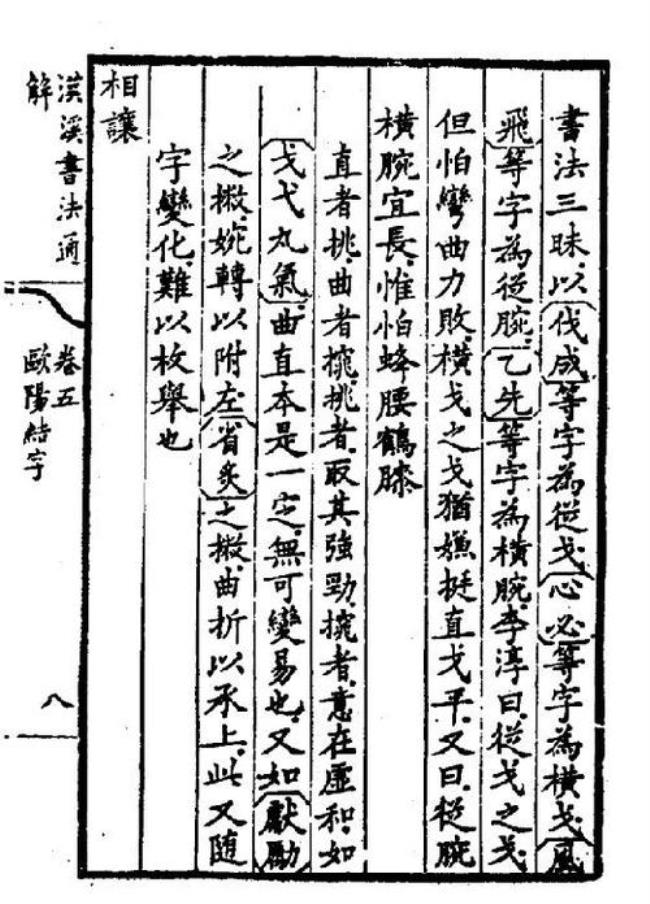 書法三昧以伐成等字為從戈心必等字為橫戈風
飛等字為從腕乙先等字為橫腕李淳曰從戈之戈
但怕彎曲力敗橫戈之戈猶嫌挺直戈平又曰從腕
橫腕宜長惟怕蜂腰鶴膝
直者挑曲者㧪挑者取其強勁㧪者意在虛和如
戈弋丸氣曲直本是一定無可變易也又如獻勵
之撇婉轉以附左省炙之撇曲折以承上此又隨
字變化難以枚舉也
相讓
漢溪書法通
解
卷五
歐陽結字
八